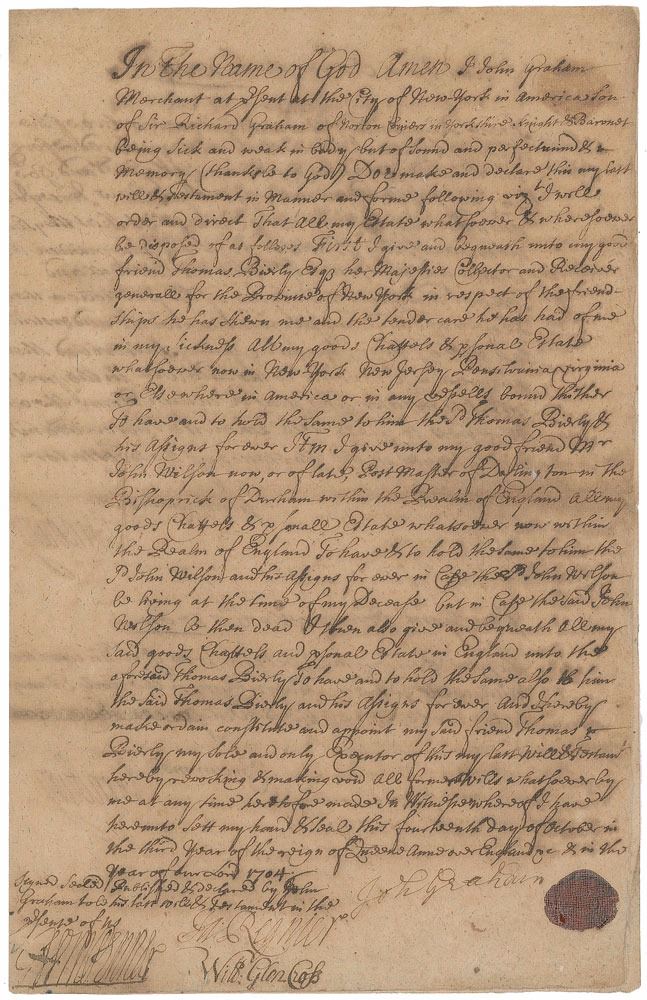 In The Name of God Amen I John Graham
Merchant at psent at the City of New York in America Son
of Sir Richard Graham of Norton Coniers in Yorkshire Knight & Baronet
being Sick and weak in body but of Sound and perfect mind &
Memory (thanks be to God) Doe make and declare this my last
will & testament in Manner and forme following vizt I will
order and direct That All my Estate whatsoever & wheresoever
be disposed of as follows First I give and bequeath unto my good
friend Thomas Bierly Esqr her Majesties Collector and Receiver
generall for the Province of New York in respect of the friend-
ships he has shewn me and the tender care he has had of me
in my Sickness All my goods Chattels & psonal Estate
whatsoever now in New York New Jersey Pensilvania Virginia
or Elsewhere in America or in any vessells bound thither
To have and to hold the Same to him the sd Thomas Bierly &
his Assigns for ever Itm I give unto my good friend Mr
John Wilson now, or of late, Post Master of Darlington in the
Bishoprick of Durham within the Realm of England All my
goods Chattels & psonall Estate whatsoever now within
the Realm of England To have & to hold the same to him the
sd John Wilson and his Assigns for ever in Case the sd John Wilson
be living at the time of my Decease but in Case the said John
Wilson be then dead I then also give and bequeath All my
said goods Chattels and psonal Estate in England unto the
aforesaid Thomas Bierly To have and to hold the Same also to him
the said Thomas Bierly and his Assigns for ever And I hereby
make ordain constitute and appoint my said friend Thomas
Bierly my Sole and only Executor of this my last Will & Testamt
hereby revoking & making void All former Wills whatsoever by
me at any time heretofore made In Witness whereof I have
hereunto Sett my hand & Seal this fourteenth day of October in
the third Year of the reign of Queene Anne over England &c & in the
Year of our Lord 1704
Signed Sealed Published & declared by John
Graham to be his last will & testament in the
psence of us
Joh Graham
Regnier
Will: Glencross